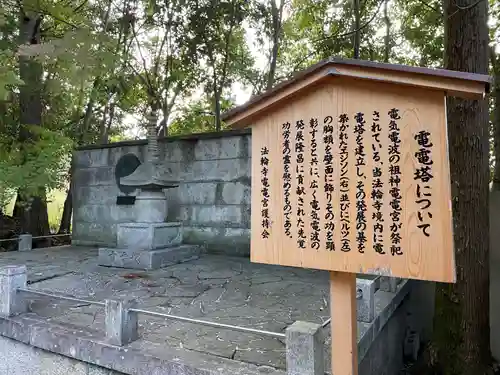 電電塔について
電気電波の祖神電電宮が祭祀
されている、当法輪寺境内に電
電塔を建立し、その発展の礎を
築かれたエジソン(右)並びにヘルツ(左)
の胸像を掲げ、その偉業を
彰すると共に、広く電気電波の
発展隆昌に貢献された先覚
功労者の霊を慰めるものである。
法輪寺電電宮護持会